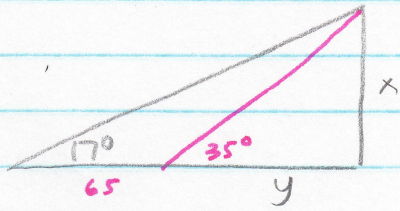 x
17°
35°
65
y